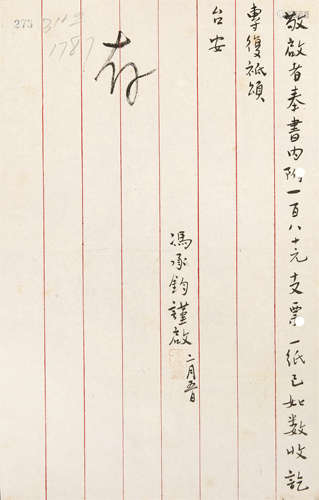 敬啟者奉書內附一百八十元支票一紙已如數收訖
專復祗頌
台安
馮承鈞謹啟 二月五日
存
273
3112
1787